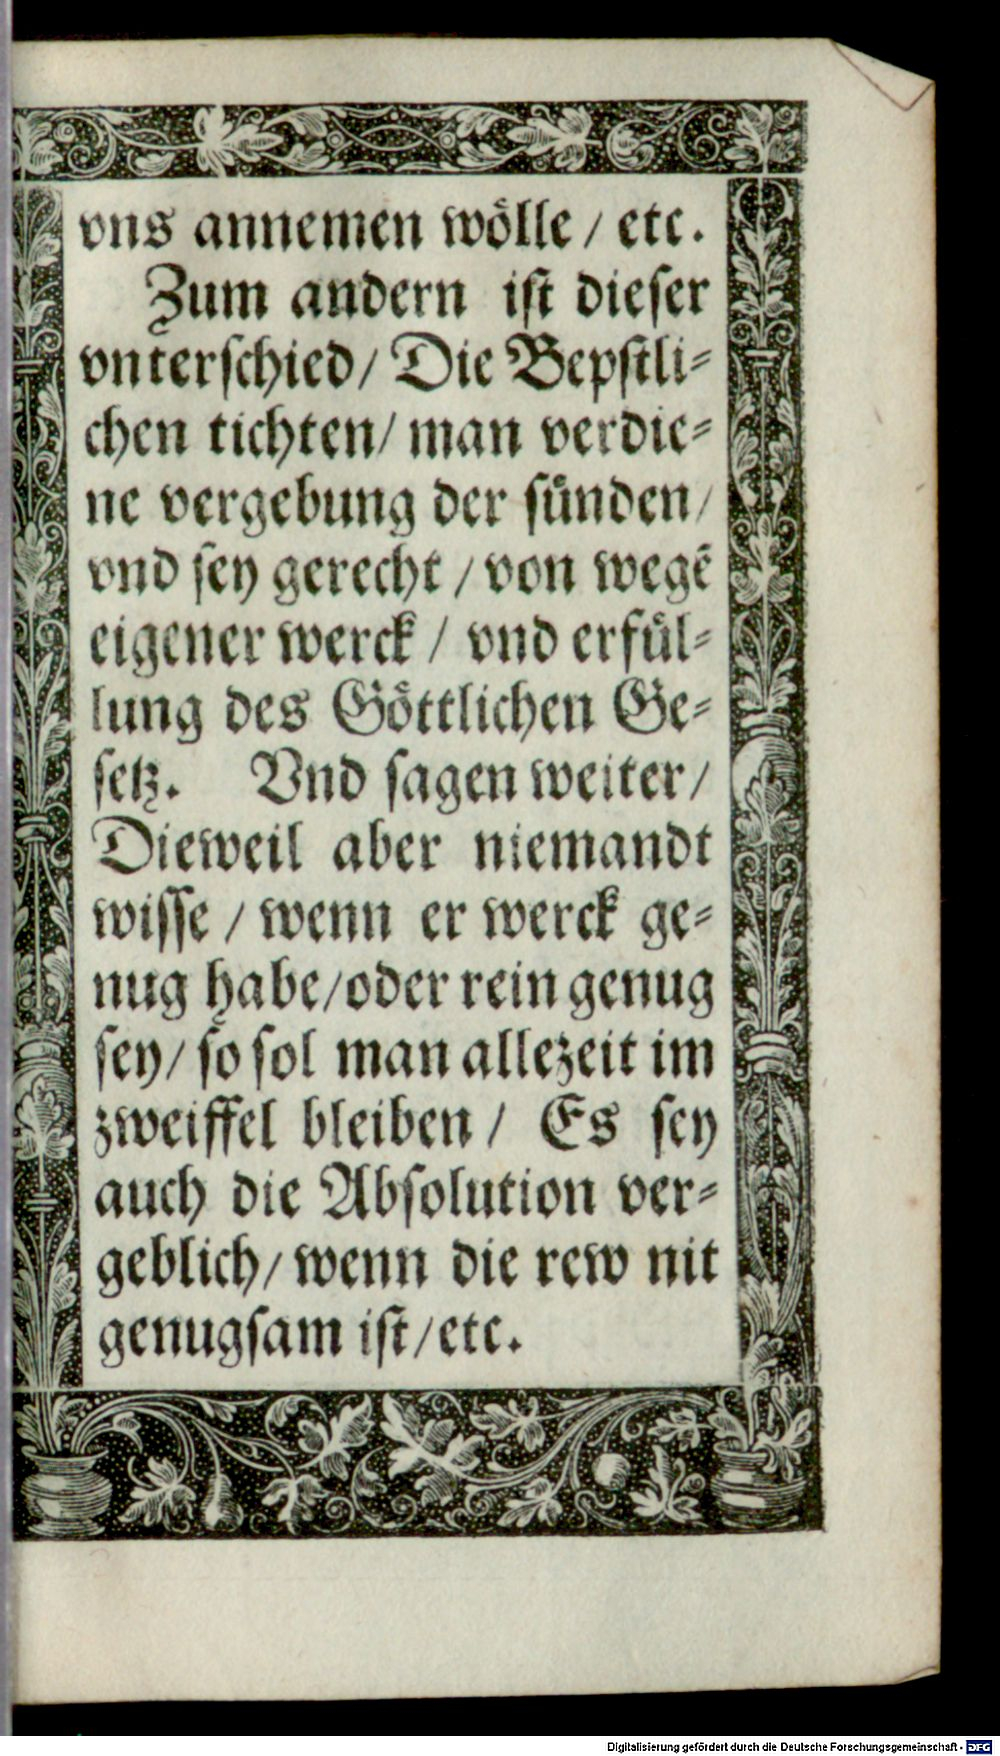 vns annemen wölle / etc.
Zum andern ist dieser
vnterschied / Die Bepstli⸗
chen tichten / man verdie⸗
ne vergebung der sünden /
vnd sey gerecht / von wegẽ
eigener werck / vnd erfül⸗
lung des Göttlichen Ge⸗
setz. Vnd sagen weiter /
Dieweil aber niemandt
wisse / wenn er werck ge⸗
nug habe / oder rein genug
sey / so sol man allezeit im
zweiffel bleiben / Es sey
auch die Absolution ver⸗
geblich / wenn die rew nit
genugsam ist / etc.
Digitalisierung gefördert durch die Deutsche Forschungsgemeinschaft - DFG